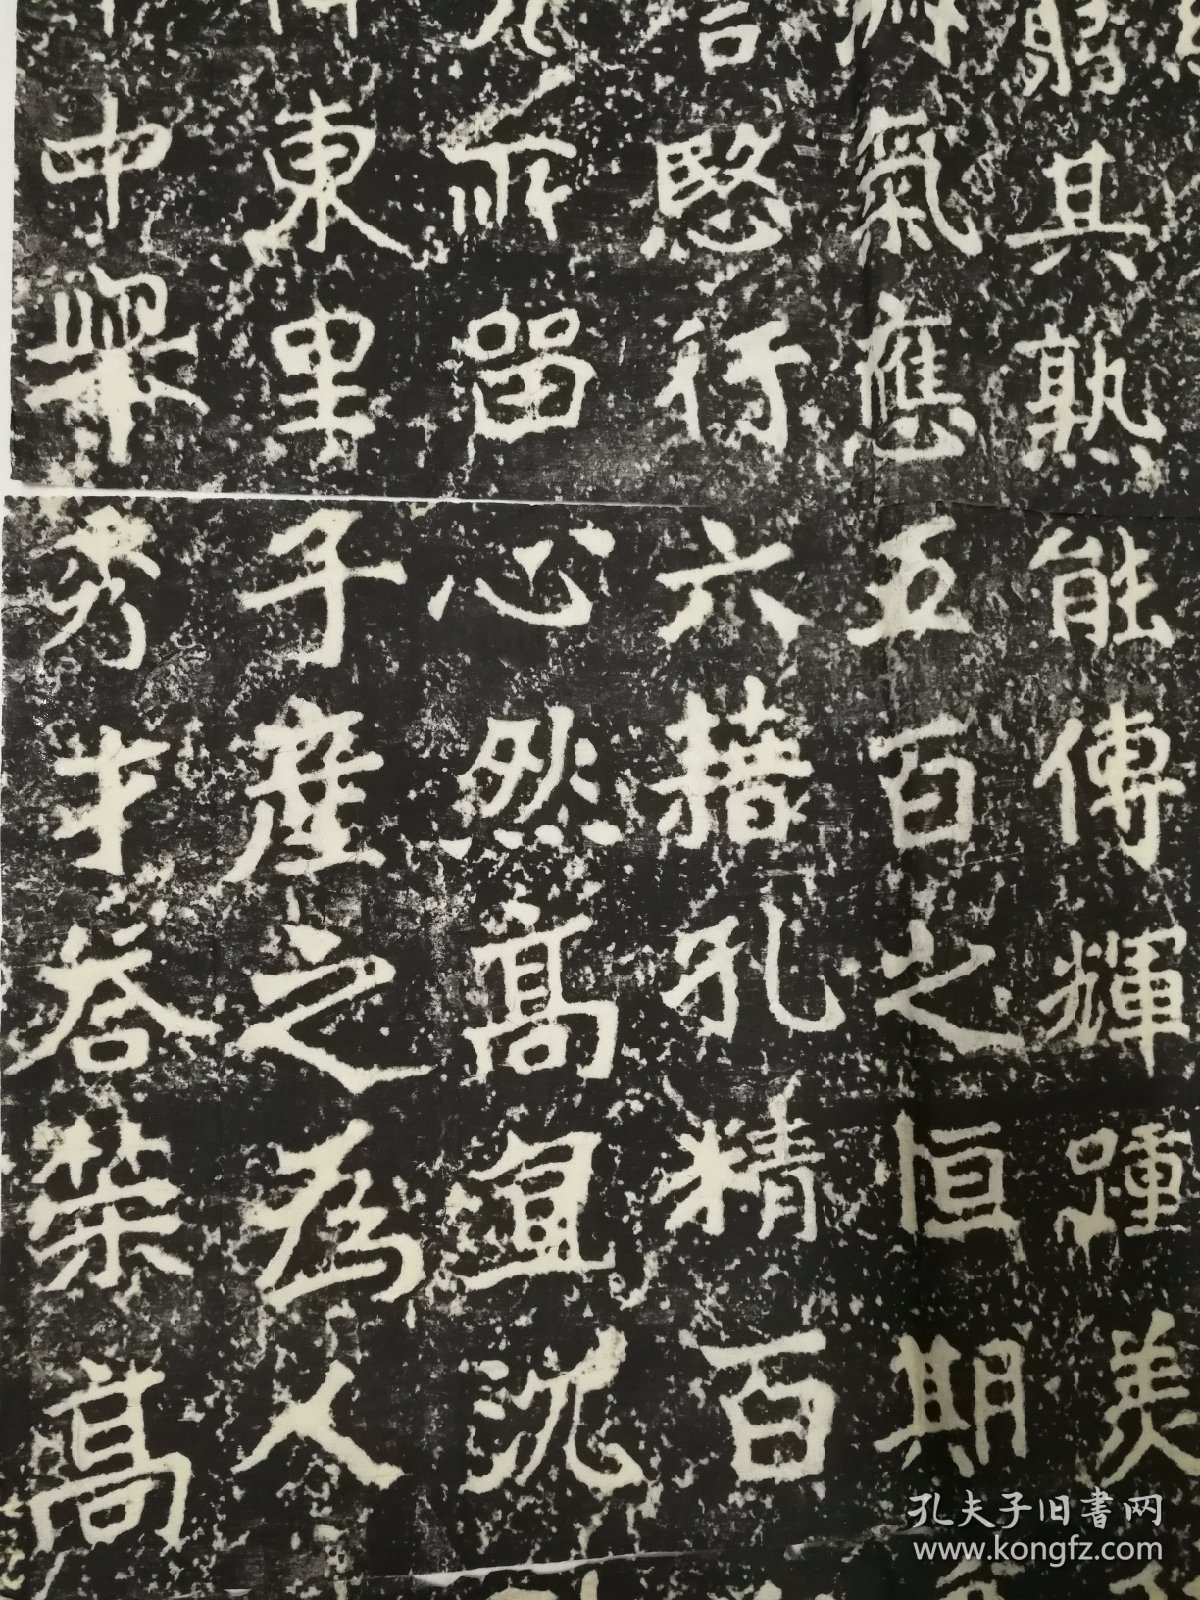 其孰能傳輝踵美
氣應五百之恒期
言驗行六籍孔精百
所留心然高直沉
東里子產之為人
中舉秀才答策高
孔夫子旧書网
www.kongfz.com